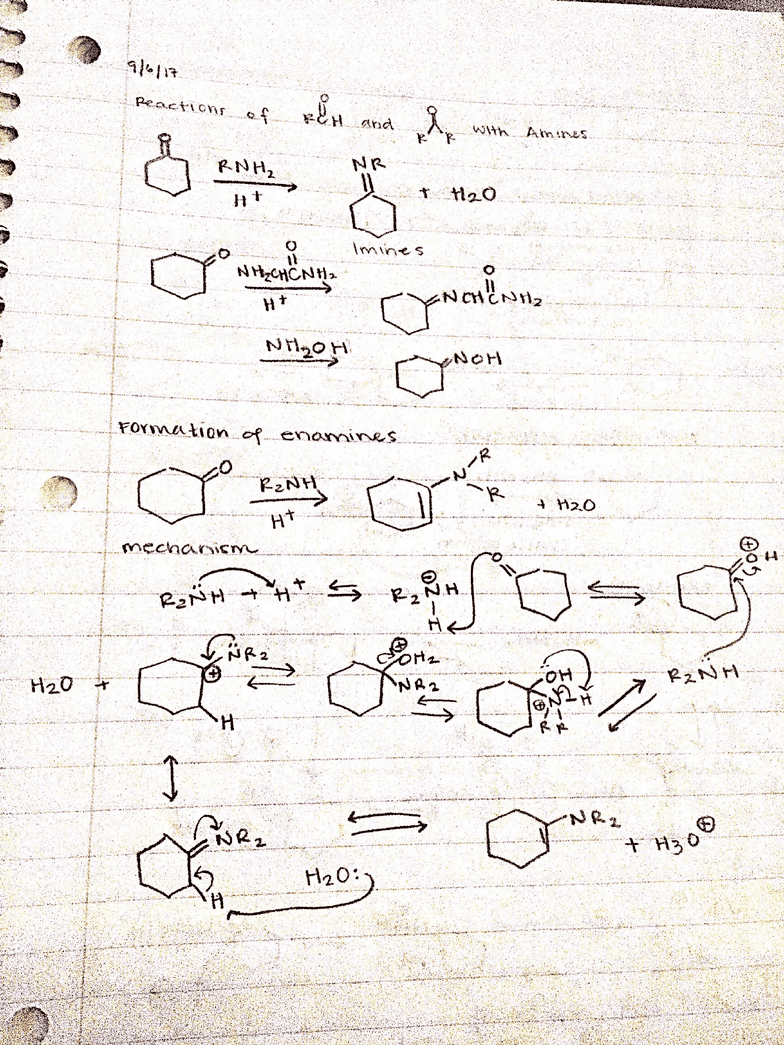 9/6/17
Reactions of RCH O and O R R with Amines
O RNH2 H+ NR + H2O
Imines
O NH2CHCNH2 O H+ NCHCNH2 O
NH2OH NOH
Formation of enamines
O R2NH H+ N R R + H2O
mechanism
R2NH + H+ R2NH H O OH
H2O + NR2 H OH2 NR2 OH N H R R R2NH
NR2 H H2O: NR2 + H3O+